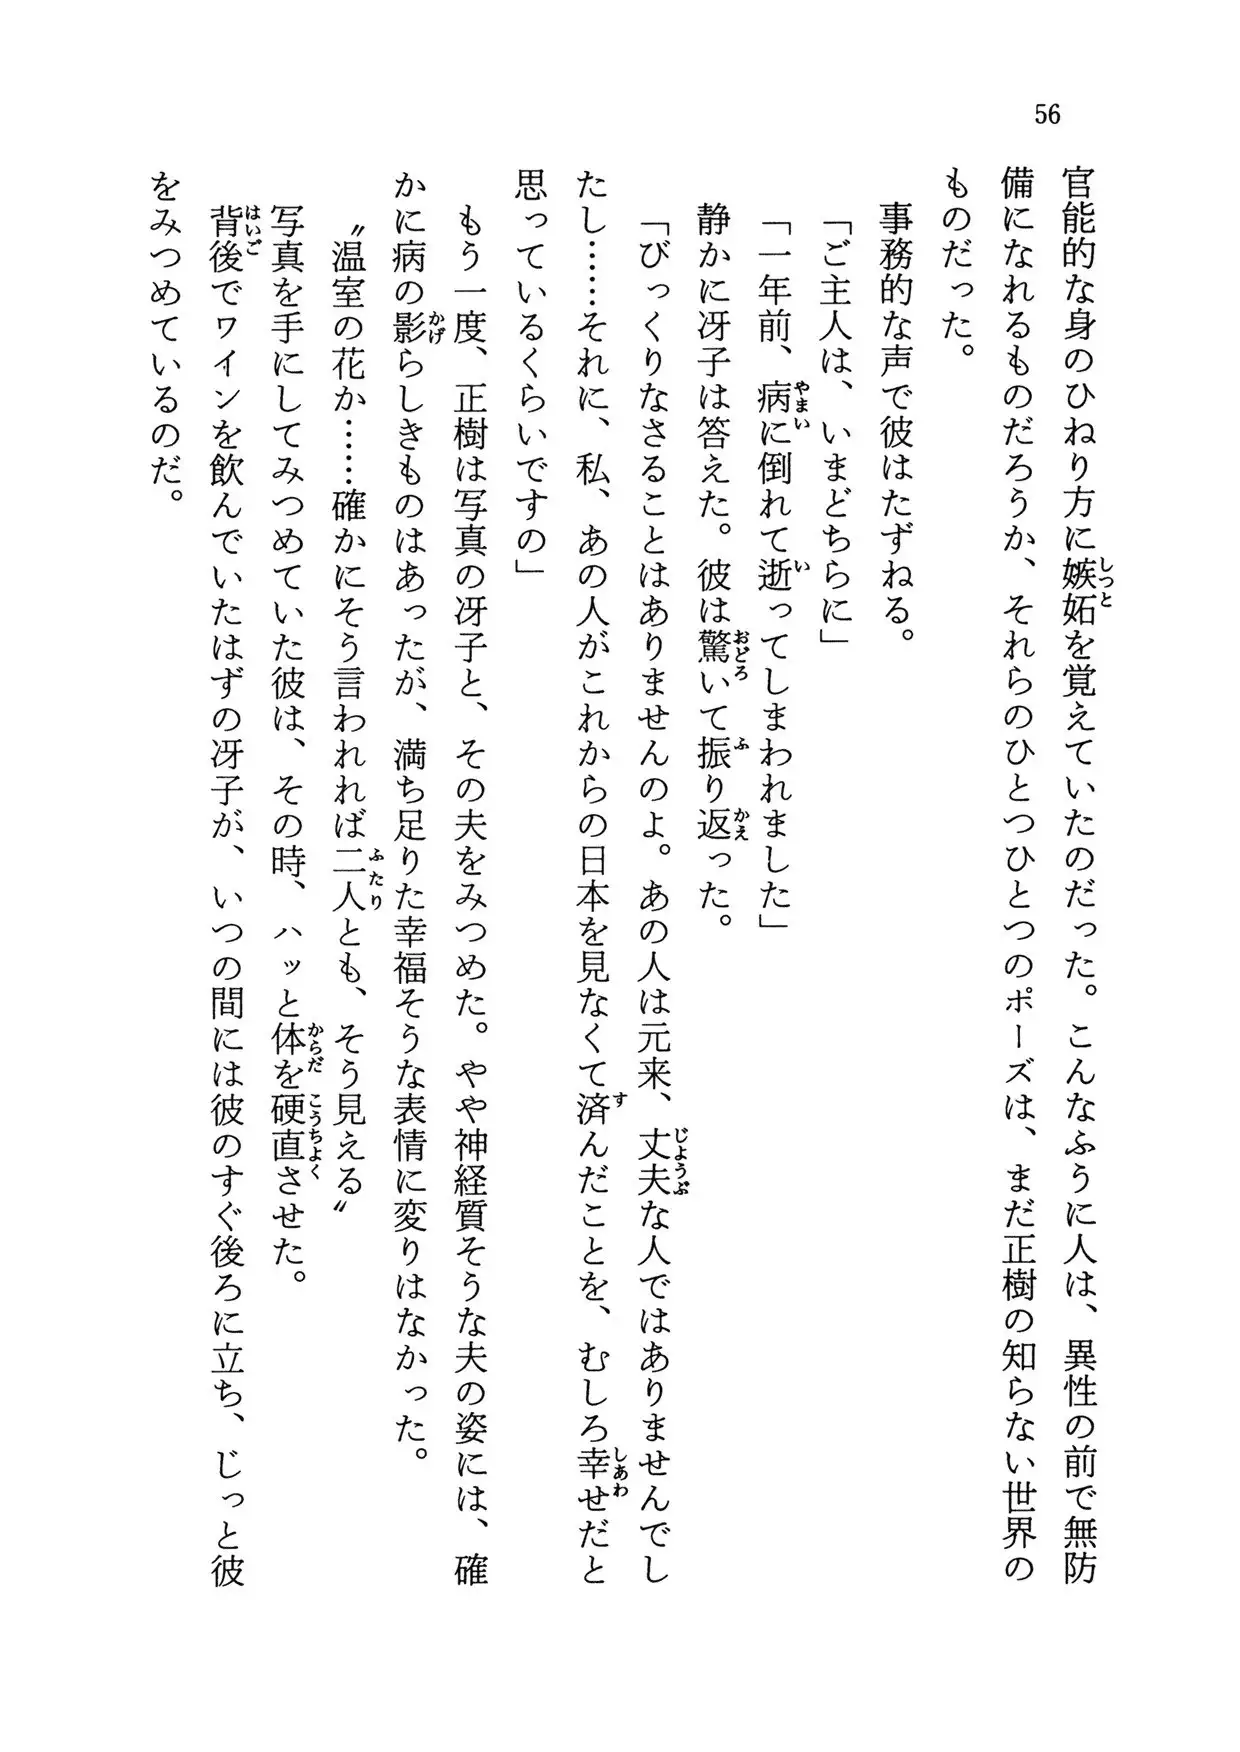 56
官能的な身のひねり方に嫉妬を覚えていたのだった。こんなふうに人は、異性の前で無防
備になれるものだろうか、それらのひとつひとつのポーズは、まだ正樹の知らない世界の
ものだった。
事務的な声で彼はたずねる。
「ご主人は、いまどちらに」
「一年前、病に倒れて逝ってしまわれました」
静かに冴子は答えた。彼は驚いて振り返った。
「びっくりなさることはありませんのよ。あの人は元来、丈夫な人ではありませんでし
たし……それに、私、あの人がこれからの日本を見なくて済んだことを、むしろ幸せだと
思っているくらいですの」
もう一度、正樹は写真の冴子と、その夫をみつめた。やや神経質そうな夫の姿には、確
かに病の影らしきものはあったが、満ち足りた幸福そうな表情に変りはなかった。
〝温室の花か……確かにそう言われれば二人とも、そう見える〟
写真を手にしてみつめていた彼は、その時、ハッと体を硬直させた。
背後でワインを飲んでいたはずの冴子が、いつの間には彼のすぐ後ろに立ち、じっと彼
をみつめているのだ。